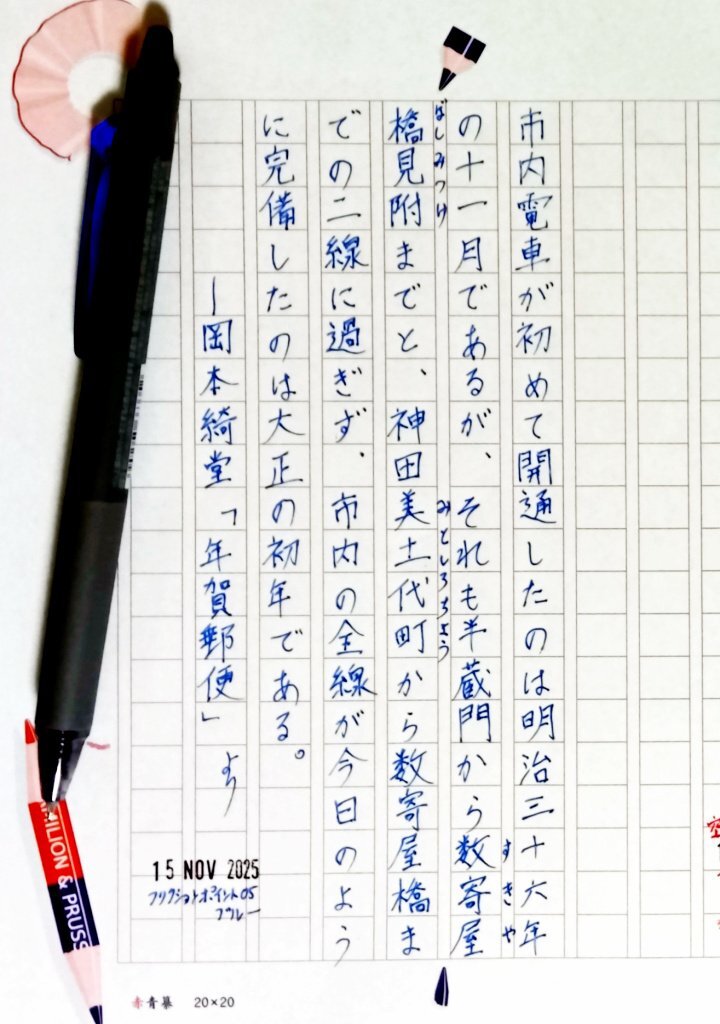 市内電車が初めて開通したのは明治三十六年
の十一月であるが、それも半蔵門から数寄屋
すきや
橋見附までと、神田美土代町から数寄屋橋ま
ばしみつけ
みとしろちょう
での二線に過ぎず、市内の全線が今日のよう
に完備したのは大正の初年である。
―岡本綺堂「年賀郵便」より
15 NOV 2025
フリクションポイント05
ブルー
MILION & PRUSS
赤青墓 20×20